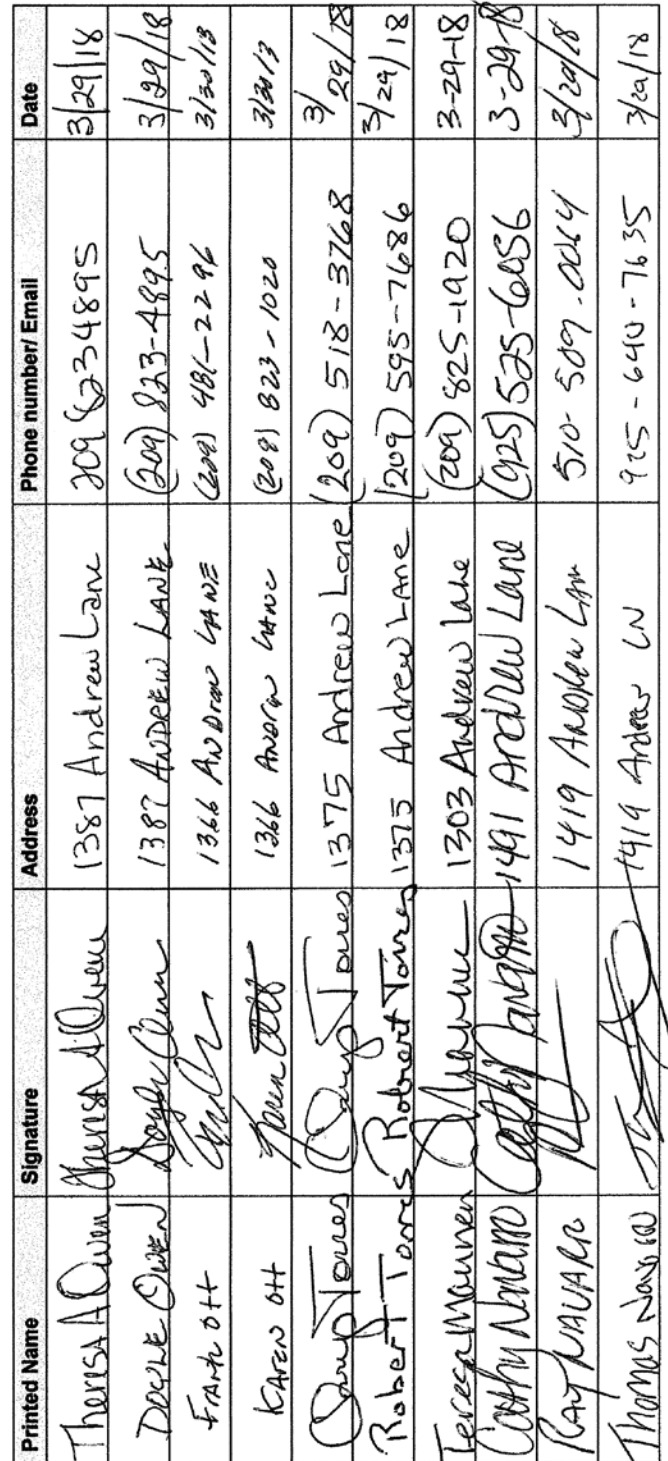 Printed Name Signature Address Phone number/ Email Date
Theresa A Owen Theresa A Owen 1387 Andrew Lane 209 823 4895 3/29/18
DOYLE OWEN 1387 ANDREW LANE (209) 823-4895 3/29/18
FRANK OTT 1366 ANDREW LANE (209) 481-2296 3/30/18
KAREN OTT Karen Ott 1366 ANDREW LANE (209) 823-1020
Torres Torres 1375 Andrew Lane (209) 518-3768 3/29/18
Robert Torres Robert Torres 1375 Andrew Lane (209) 595-7686 3/29/18
Teresa 1303 Andrew Lane (209) 825-1920 3-29-18
Cathy Cathy 1491 Andrew Lane (925) 525-6056 3-29-18
RAY NAVARRO 1419 ANDREW LN 510-509-0064 3/29/18
Thomas 1419 Andrew LN 925-640-7635 3/29/18